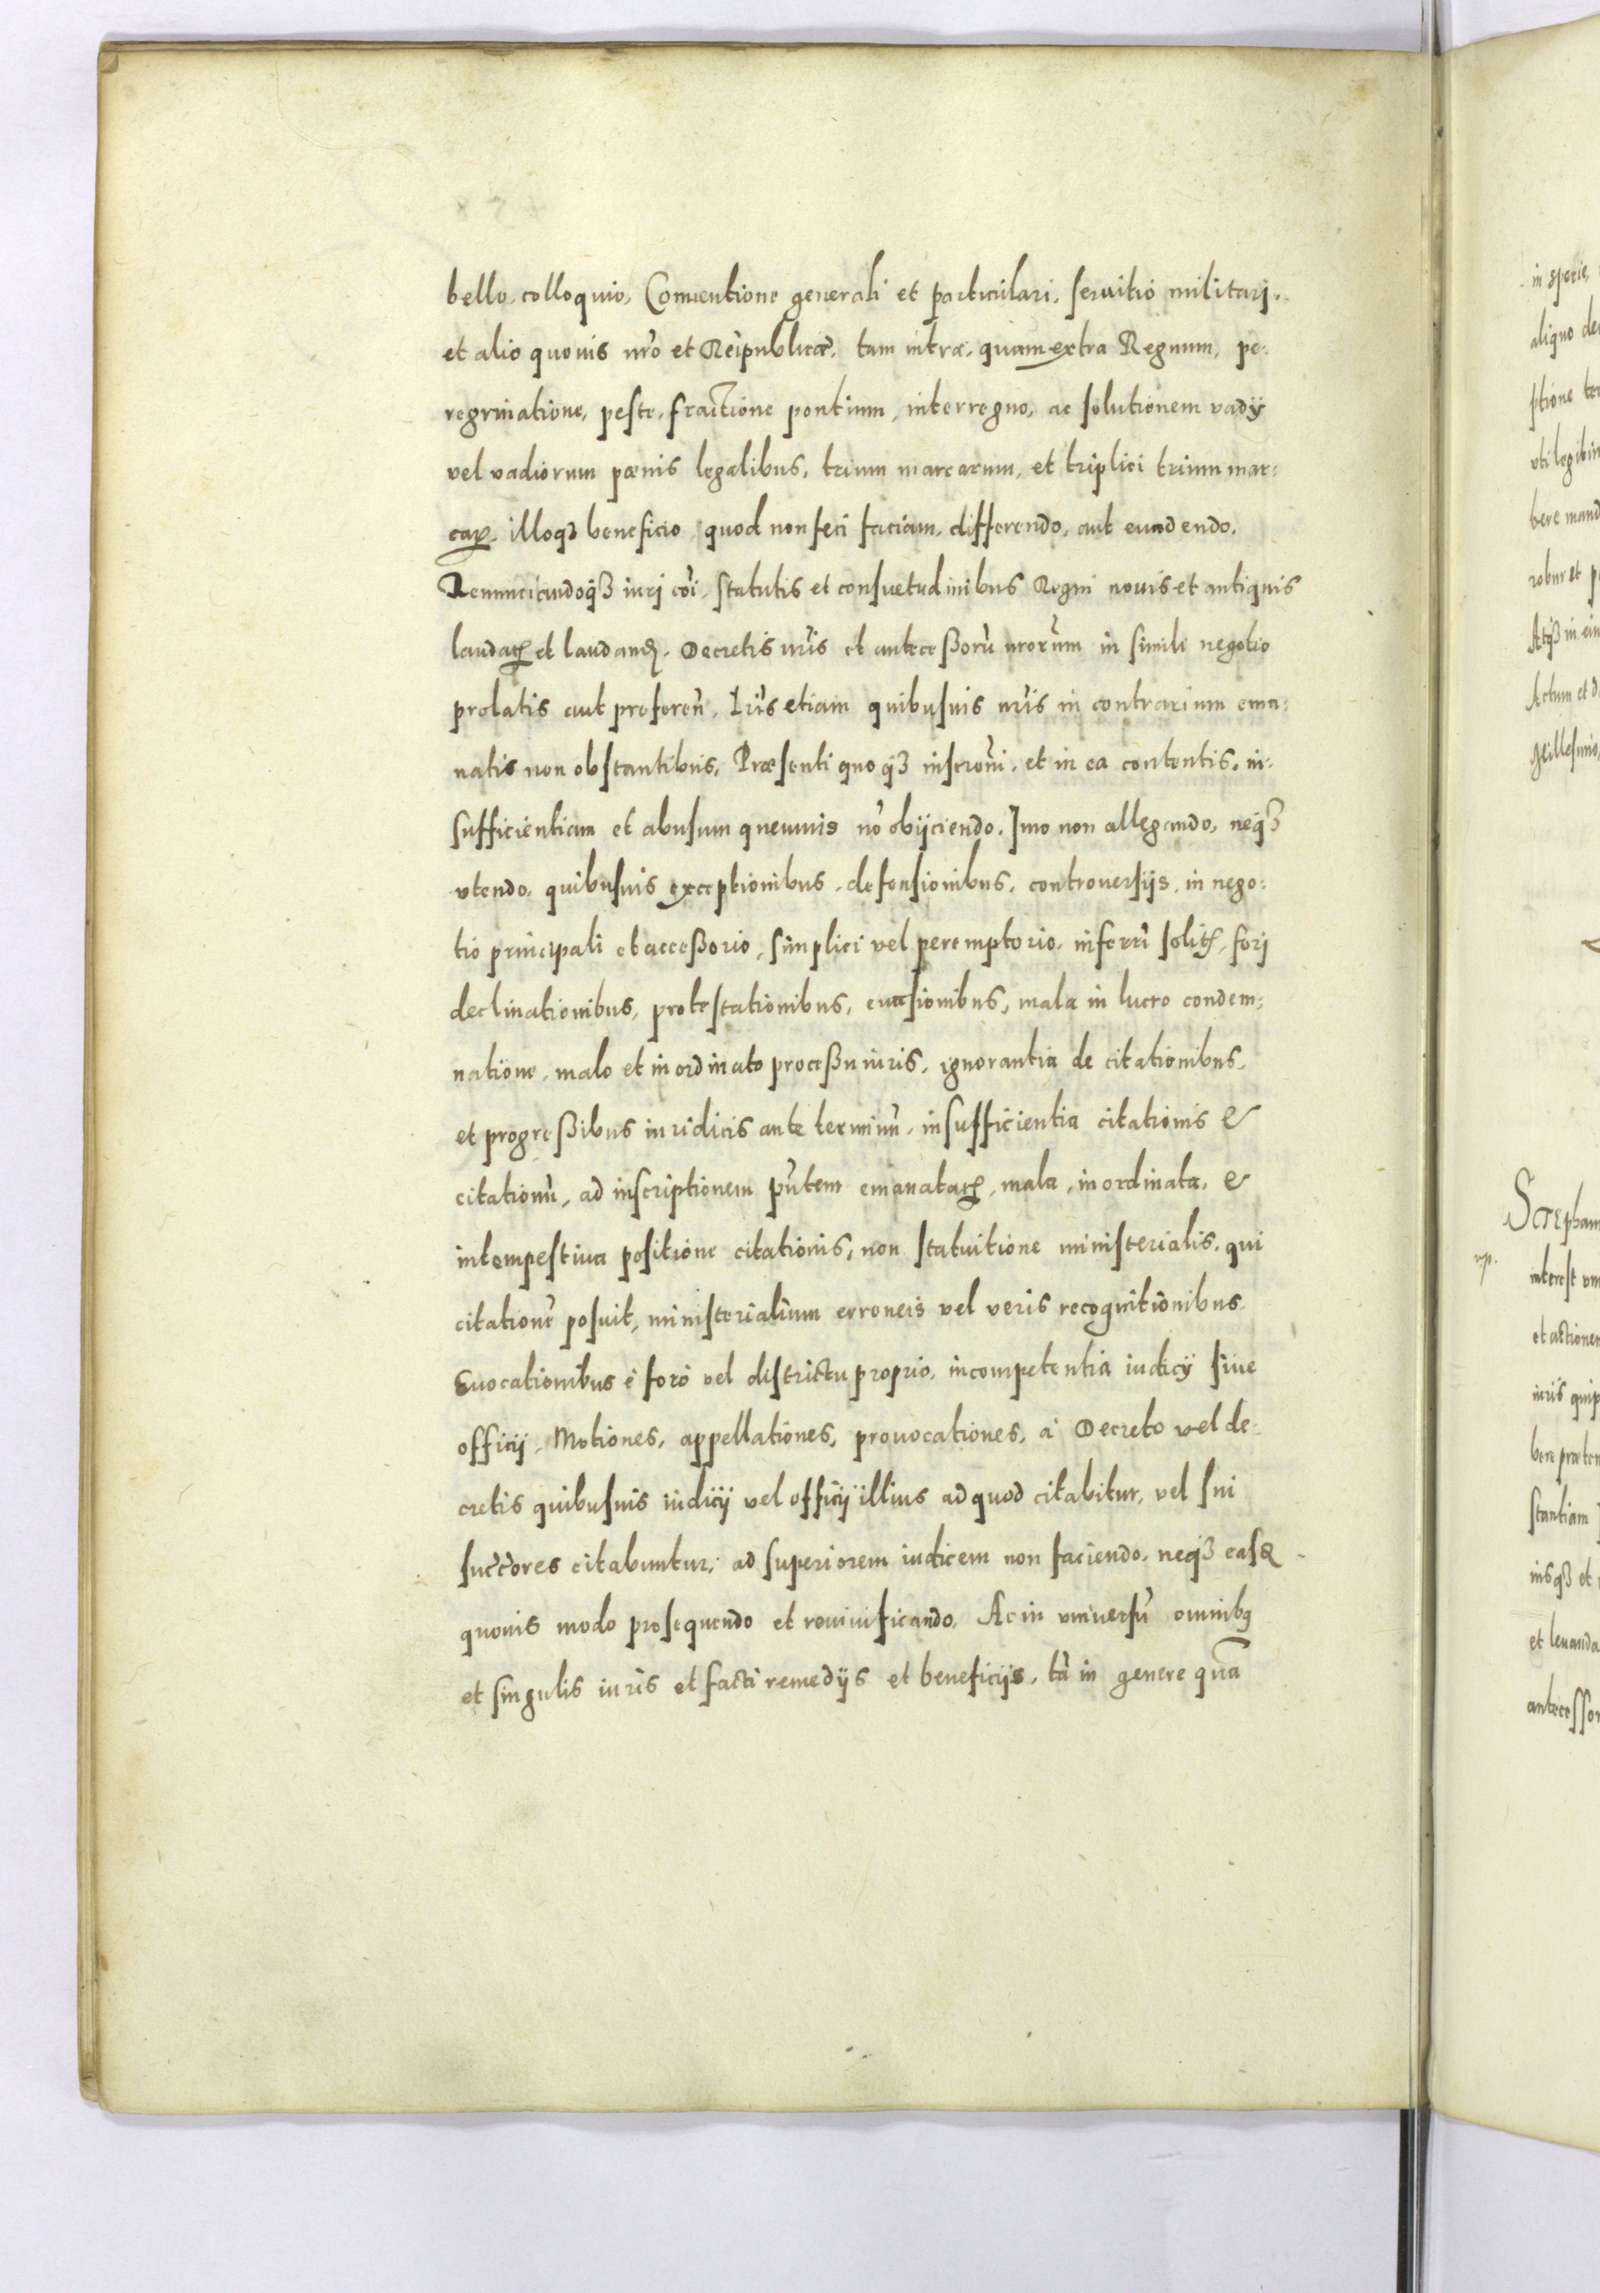 bello, colloquio, Conuentione generali et particulari, seruitio militari,
et alio quouis nr̃o et Reipublicæ, tam intra, quam extra Regnum, pe:
regrinatione, peste, fractione pontium, interregno, ac solutionem vadij
vel vadiorum pænis legalibus, trium marcarum, et triplici trium mar:
caꝝ, illoqꝫ beneficio quod non feci faciam, differendo, aut euadendo.
Renunciandoqꝫ iuri cõi, statutis et consuetudinibus Regni nouis et antiquis
laudatꝭ et laudandꝭ. Decretis nr̃is et anteceßorũ nrorũm in simili negotio
prolatis aut proferen̄, Lr̃is etiam quibusuis nr̃is in contrarium ema:
natis non obstantibus, Præsenti quoqꝫ inscrõni, et in ea contentis, in:
sufficientiam et abusum queuuis nõ obijciendo. Imo non allegando, neqꝫ
vtendo, quibusuis exceptionibus, defensionibus, controuersijs, in nego:
tio principali et acceßorio, simplici vel peremptorio, inferri solitꝭ, fori
declinationibus, protestationibus, euasionibus, mala in lucro condem:
natione, malo et inordinato proceßu iuris, ignorantia de citationibus,
et progreßibus iuridicis ante terminũ, insufficientia citationis &
citationũ, ad inscriptionem pũtem emanatarꝭ, mala, inordinata, &
intempestiua positione citationis, non statuitione ministerialis, qui
citationẽ posuit, ministerialium erroneis vel veris recognitionibus
Euocationibus è foro vel districtu proprio, incompetentia iudicij siue
officij, Motiones, appellationes, prouocationes, à Decreto vel de:
cretis quibusuis iudicij vel officij illius ad quod citabitur, vel sui
succ̃ores citabuntur, ad superiorem iudicem non faciendo, neqꝫ easꝗ
quouis modo prosequendo et reuiuificando. Ac in vniuersũ omnibꝫ
et singulis iuris et facti remedijs et beneficijs, tã in genere quã
in specie,
aliquo de
ptione te
vti legitim
bere mand
robur et p
Atqꝫ in ein
Actum et d
Millesimo,
Stephan
mp.
interest vm
et actionem
iuris quip
bere præten
stantiam
insqꝫ et
et leuanda
antecessor